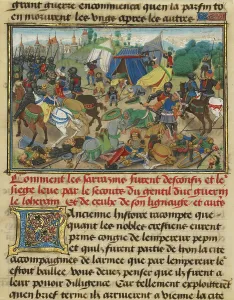 grant guerre encommenca quen la parfin to
en moururent les ungs apres les autres
Comment les sarrazins furent desconfis et le
siege leue par le secours du gentil duc guerin
le loherain et de ceulx de son lignaige et aut
Ancienne hystoire racompte que
quant les nobles crestiens eurent
prins congie de lempereur pepin
et quilz furent partis de lyon la cite
accompaignes de larmee que lempereur le
eust baillee Vous deuez penser que ilz furent a
leur pouoir diligence Car tellement exploitterent
quen brief terme ilz arriuerent a vienne la cite